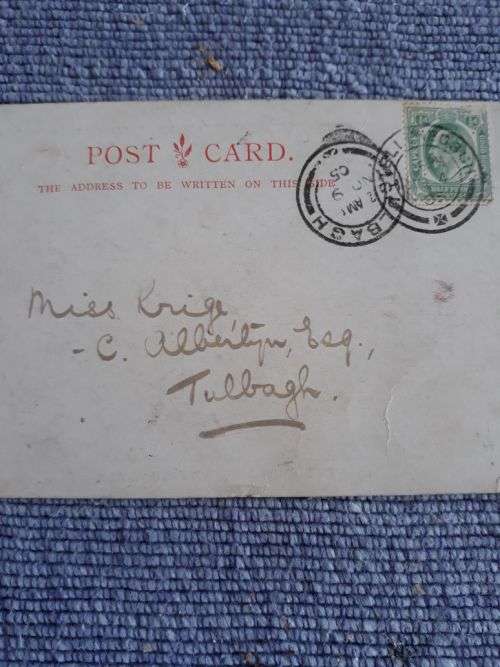 POST CARD.
THE ADDRESS TO BE WRITTEN ON THIS SIDE.
TULBAGH
AM
9
05
Miss Krige,
- C. Albertyn, Esq.,
Tulbagh.